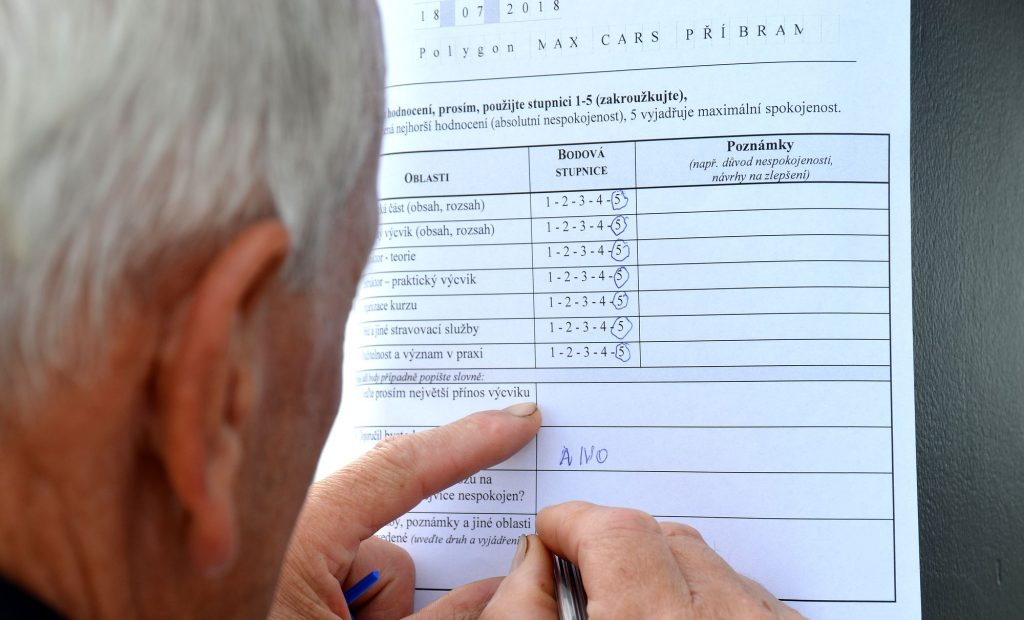 18 07 2018
Polygon MAX CARS PŘÍBRAM
hodnocení, prosím, použijte stupnici 1-5 (zakroužkujte),
nejhorší hodnocení (absolutní nespokojenost), 5 vyjadřuje maximální spokojenost.
OBLASTI BODOVÁ STUPNICE Poznámky
(např. důvod nespokojenosti,
návrhy na zlepšení)
část (obsah, rozsah) 1 - 2 - 3 - 4 - 5
výcvik (obsah, rozsah) 1 - 2 - 3 - 4 - 5
- teorie 1 - 2 - 3 - 4 - 5
– praktický výcvik 1 - 2 - 3 - 4 - 5
kurzu 1 - 2 - 3 - 4 - 5
a jiné stravovací služby 1 - 2 - 3 - 4 - 5
a význam v praxi 1 - 2 - 3 - 4 - 5
body případně popište slovně:
prosím největší přínos výcviku
ANO
na
nespokojen?
poznámky a jiné oblasti
(uveďte druh a vyjádření